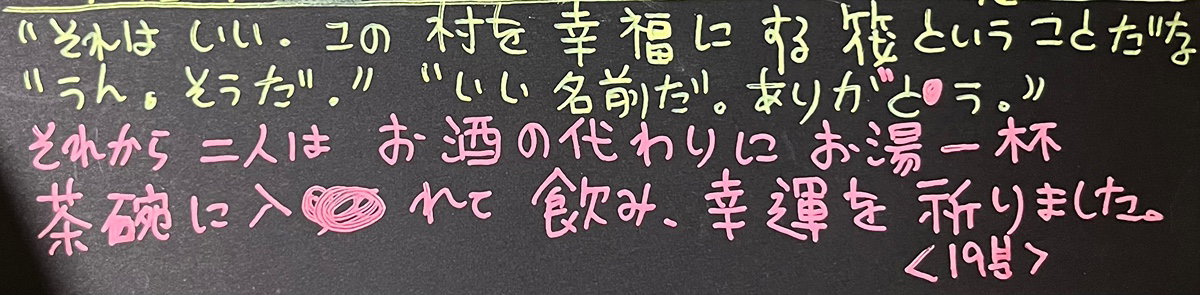 “それは いい。この 村を 幸福に する 筏ということだな
“うん。そうだ。” “いい 名前だ。ありがとう。”
それから 二人は お酒の代わりに お湯一杯
茶碗に入れて 飲み、幸運を 祈りました。
<19号>